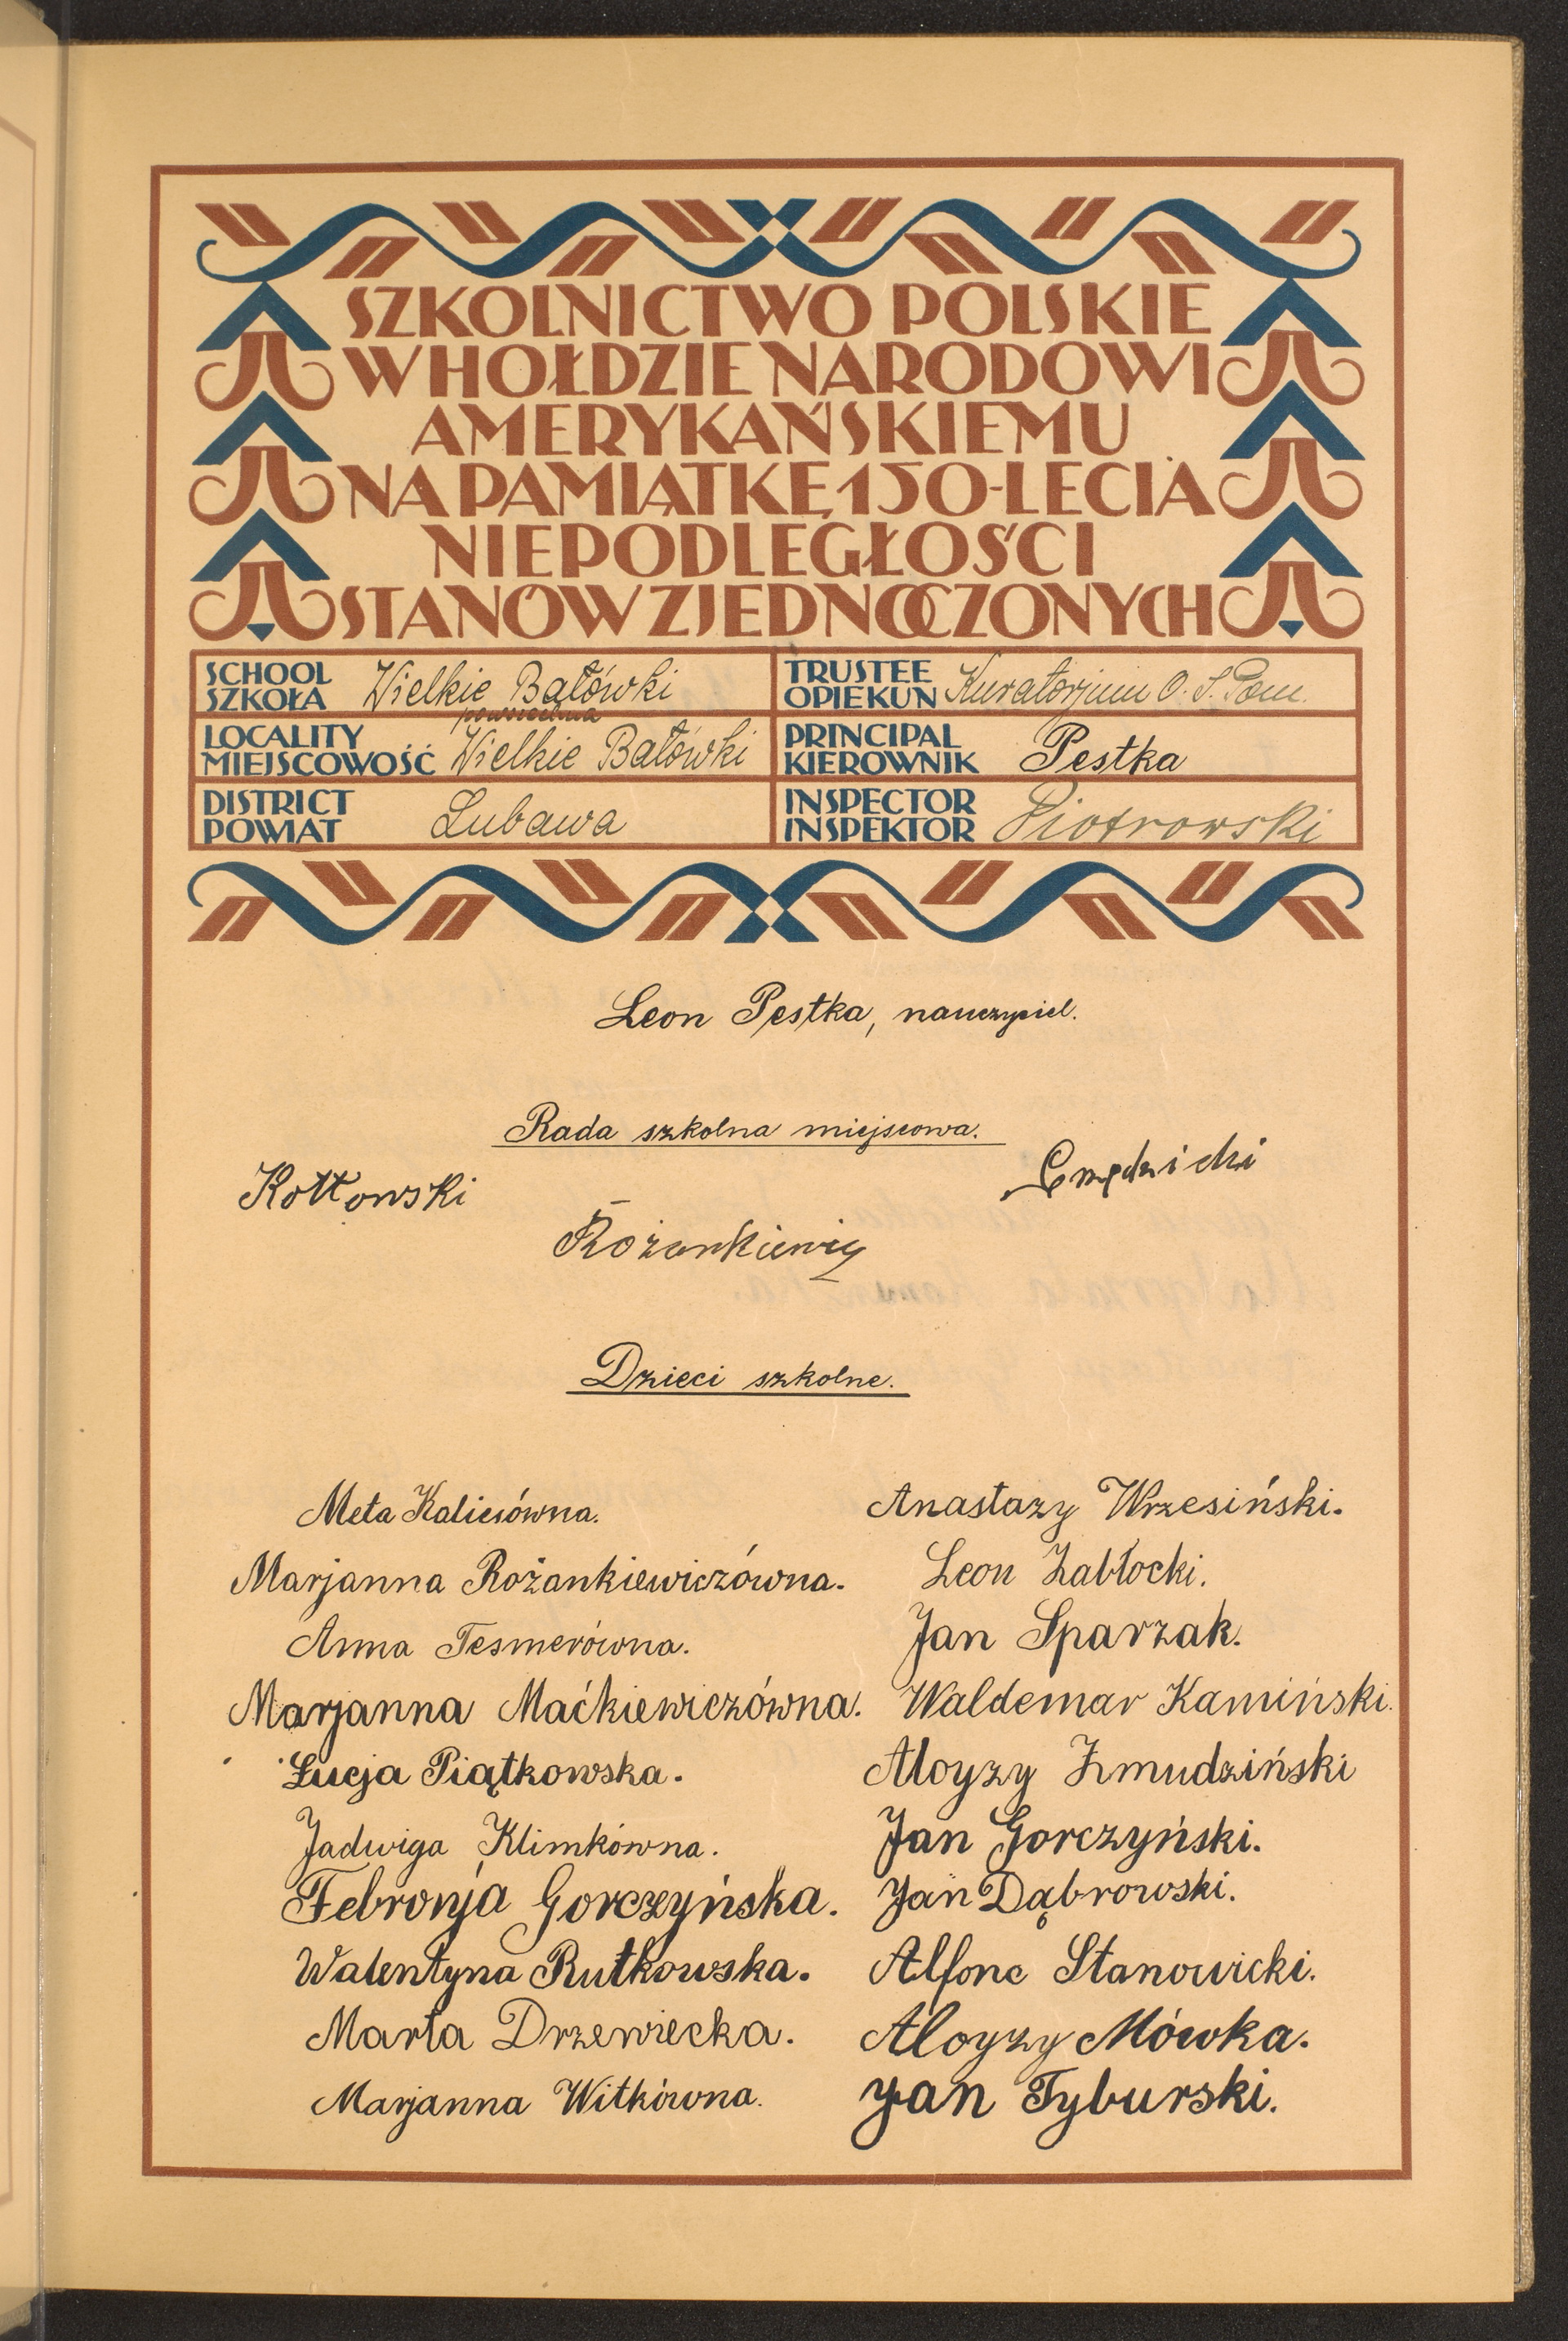 SZKOLNICTWO POLSKIE
W HOŁDZIE NARODOWI
AMERYKAŃSKIEMU
NA PAMIĄTKĘ 150-LECIA
NIEPODLEGŁOŚCI
STANÓW ZJEDNOCZONYCH
SCHOOL
SZKOŁA Wielkie Bałówki
powszechna
TRUSTEE
OPIEKUN Kuratorjum O. S. Pom.
LOCALITY
MIEJSCOWOŚĆ Wielkie Bałówki
PRINCIPAL
KIEROWNIK Pestka
DISTRICT
POWIAT Lubawa
INSPECTOR
INSPEKTOR Piotrowski
Leon Pestka, nauczyciel.
Rada szkolna miejscowa.
Kottowski
Rożankiewicz
Dzieci szkolne.
Meta Kaliesówna.
Marjanna Rożankiewiczówna.
Anna Tesmerówna.
Marjanna Maćkiewiczówna.
Łucja Piątkowska.
Jadwiga Klimkówna.
Febronja Gorczyńska.
Walentyna Rutkowska.
Marta Drzewiecka.
Marjanna Witkówna.
Anastazy Wrzesiński.
Leon Zabłocki.
Jan Sparzak.
Waldemar Kamiński.
Aloyzy Żmudziński
Jan Gorczyński.
Jan Dąbrowski.
Alfonc Stanowicki.
Aloyzy Mówka.
Jan Tyburski.